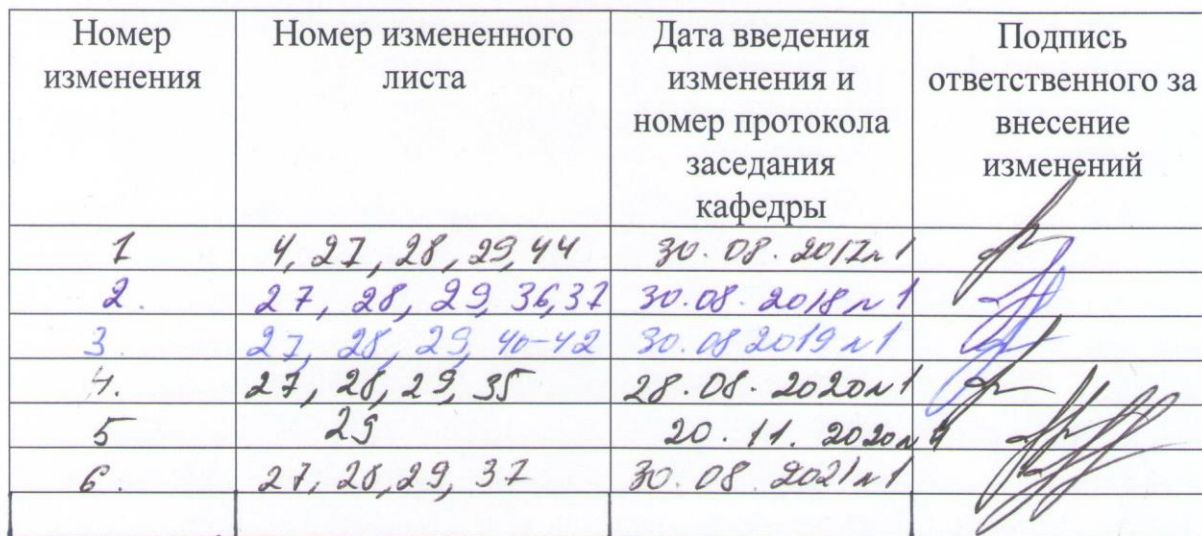 Номер изменения | Номер измененного листа | Дата введения изменения и номер протокола заседания кафедры | Подпись ответственного за внесение изменений
1 | 4, 27, 28, 29, 44 | 30.08.2017 № 1
2. | 27, 28, 29, 36, 37 | 30.08.2018 № 1
3. | 27, 28, 29, 40-42 | 30.08.2019 № 1
4. | 27, 28, 29, 35 | 28.08.2020 № 1
5 | 29 | 20.11.2020 № 4
6. | 27, 28, 29, 37 | 30.08.2021 № 1